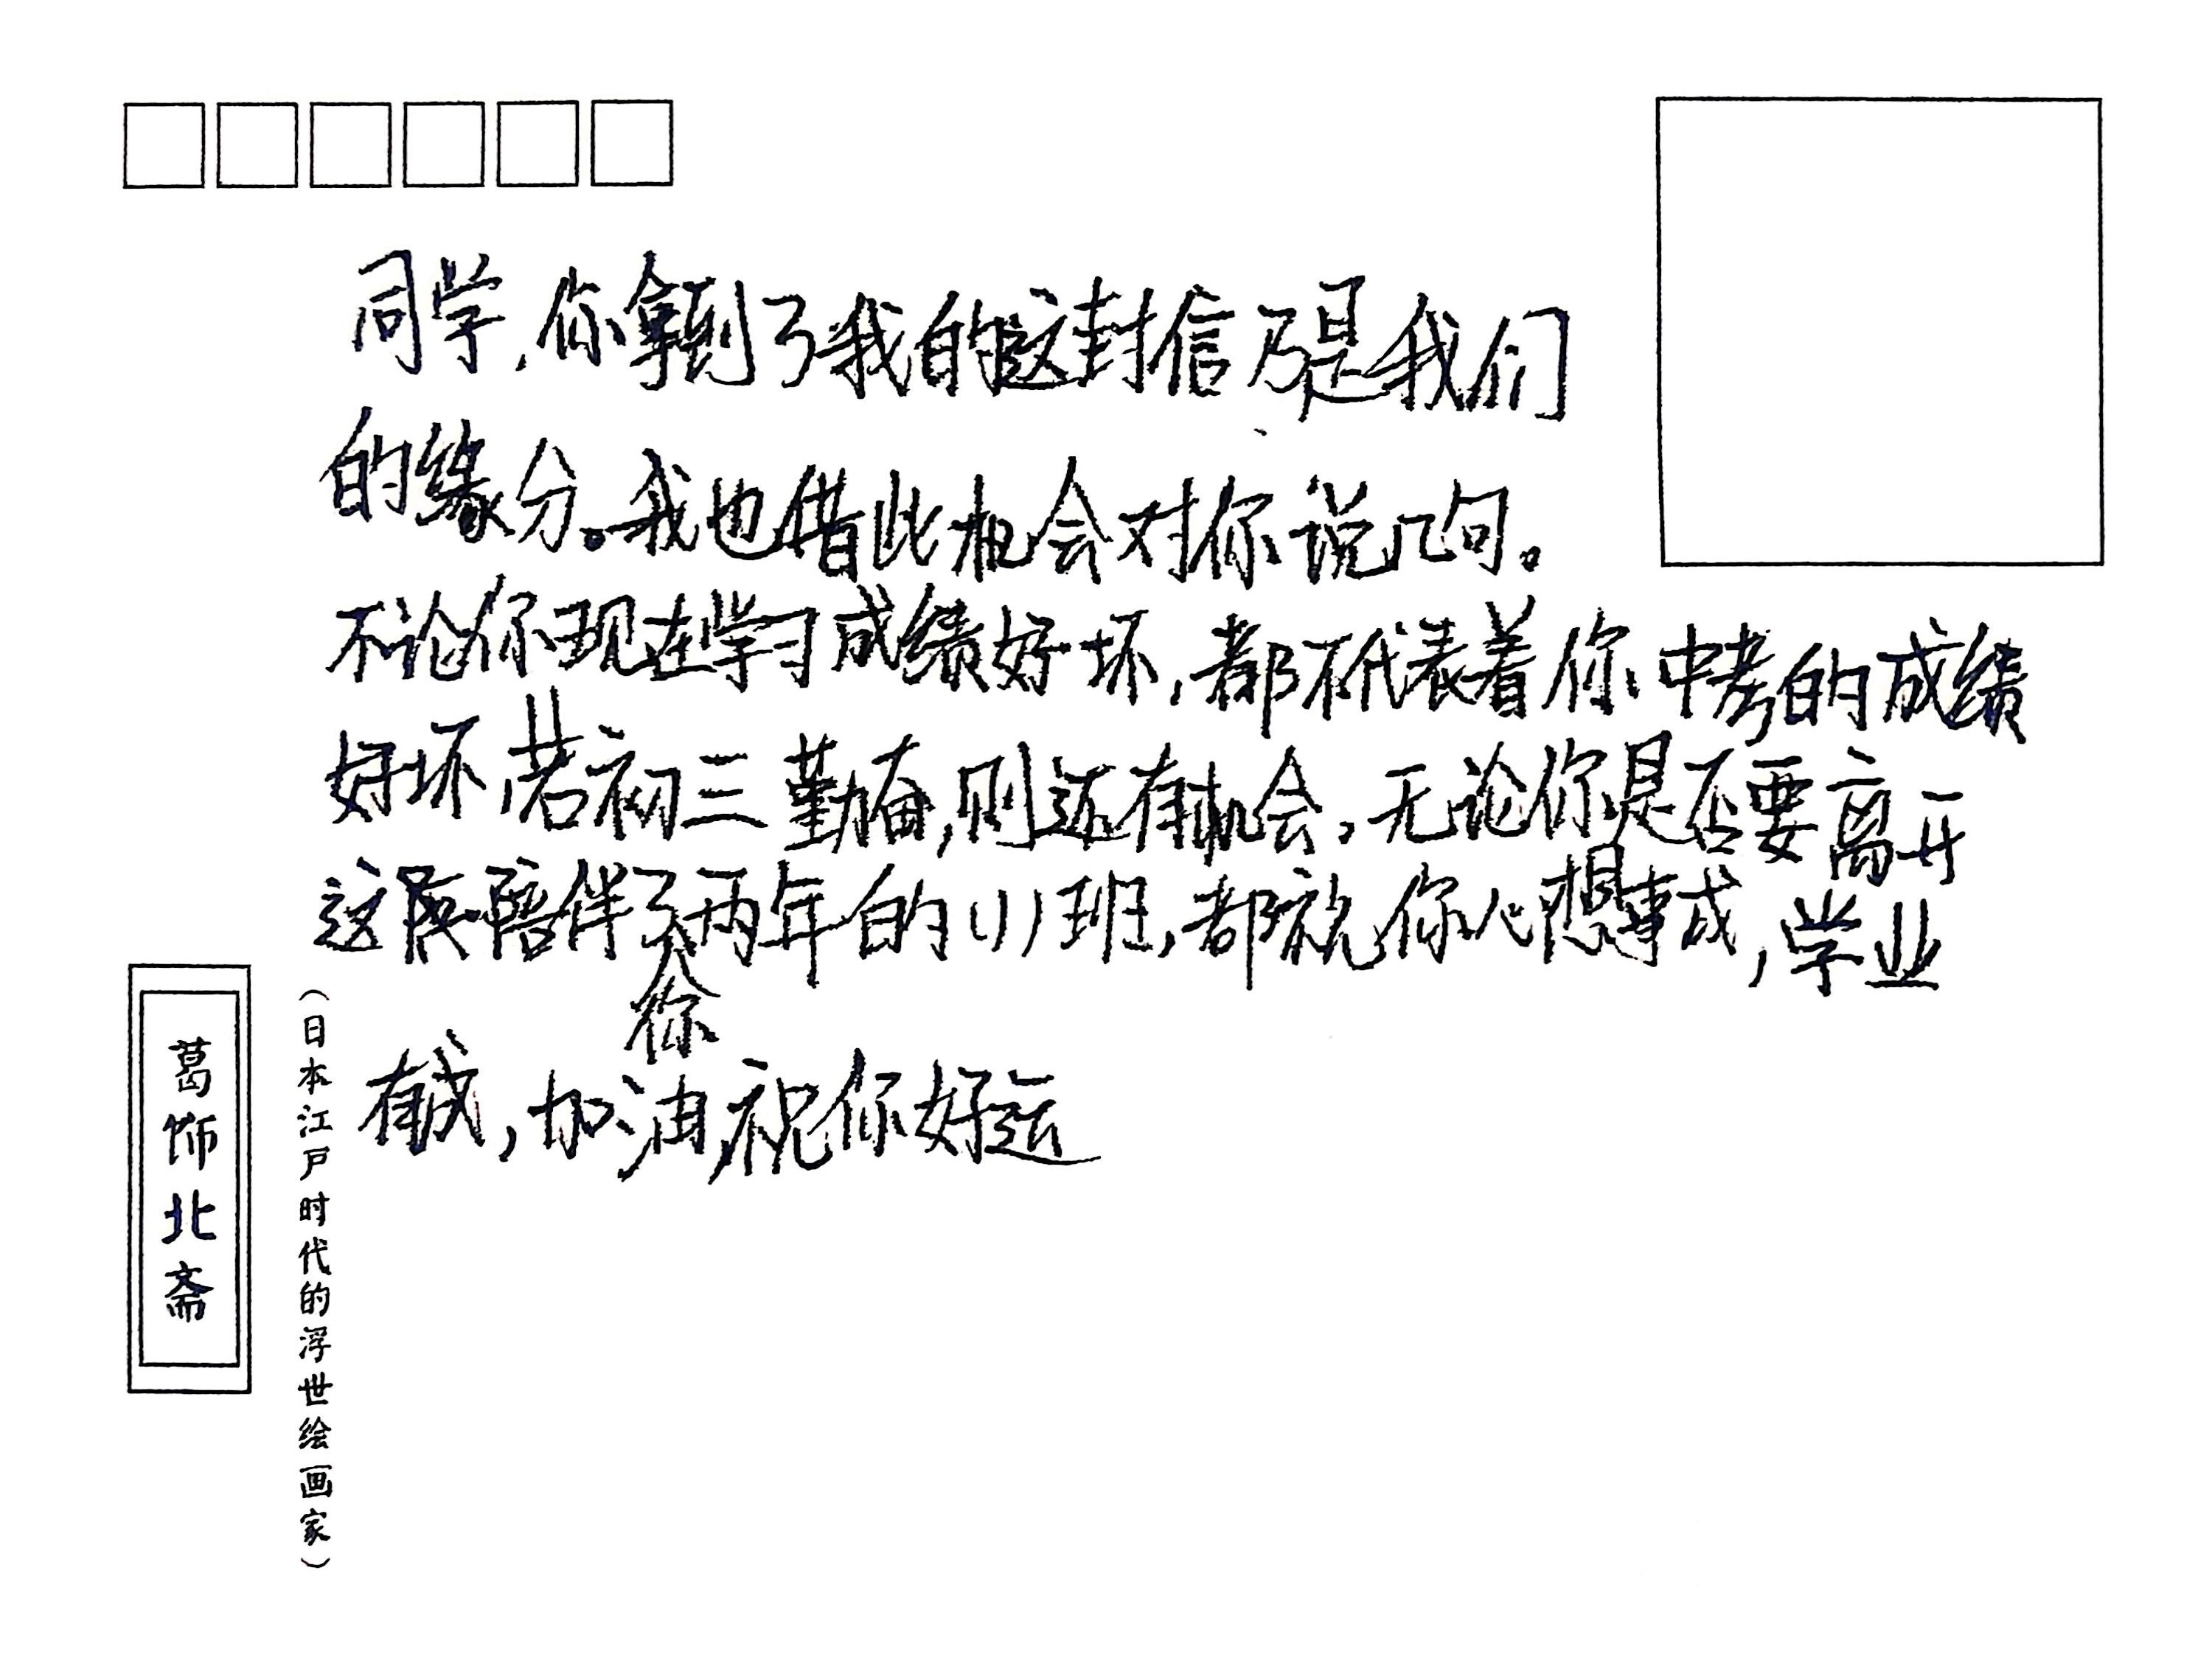 同学，你拿到了我的这封信乃是我们
的缘分。我也借此机会对你说几句。
不论你现在学习成绩好坏，都不代表着你中考的成绩
好坏，若初三勤奋，则还有机会，无论你是否要离开
这陪伴了你两年的（1）班，都祝你心想事成，学业
有成，加油，祝你好运
葛饰北斋
（日本江户时代的浮世绘画家）